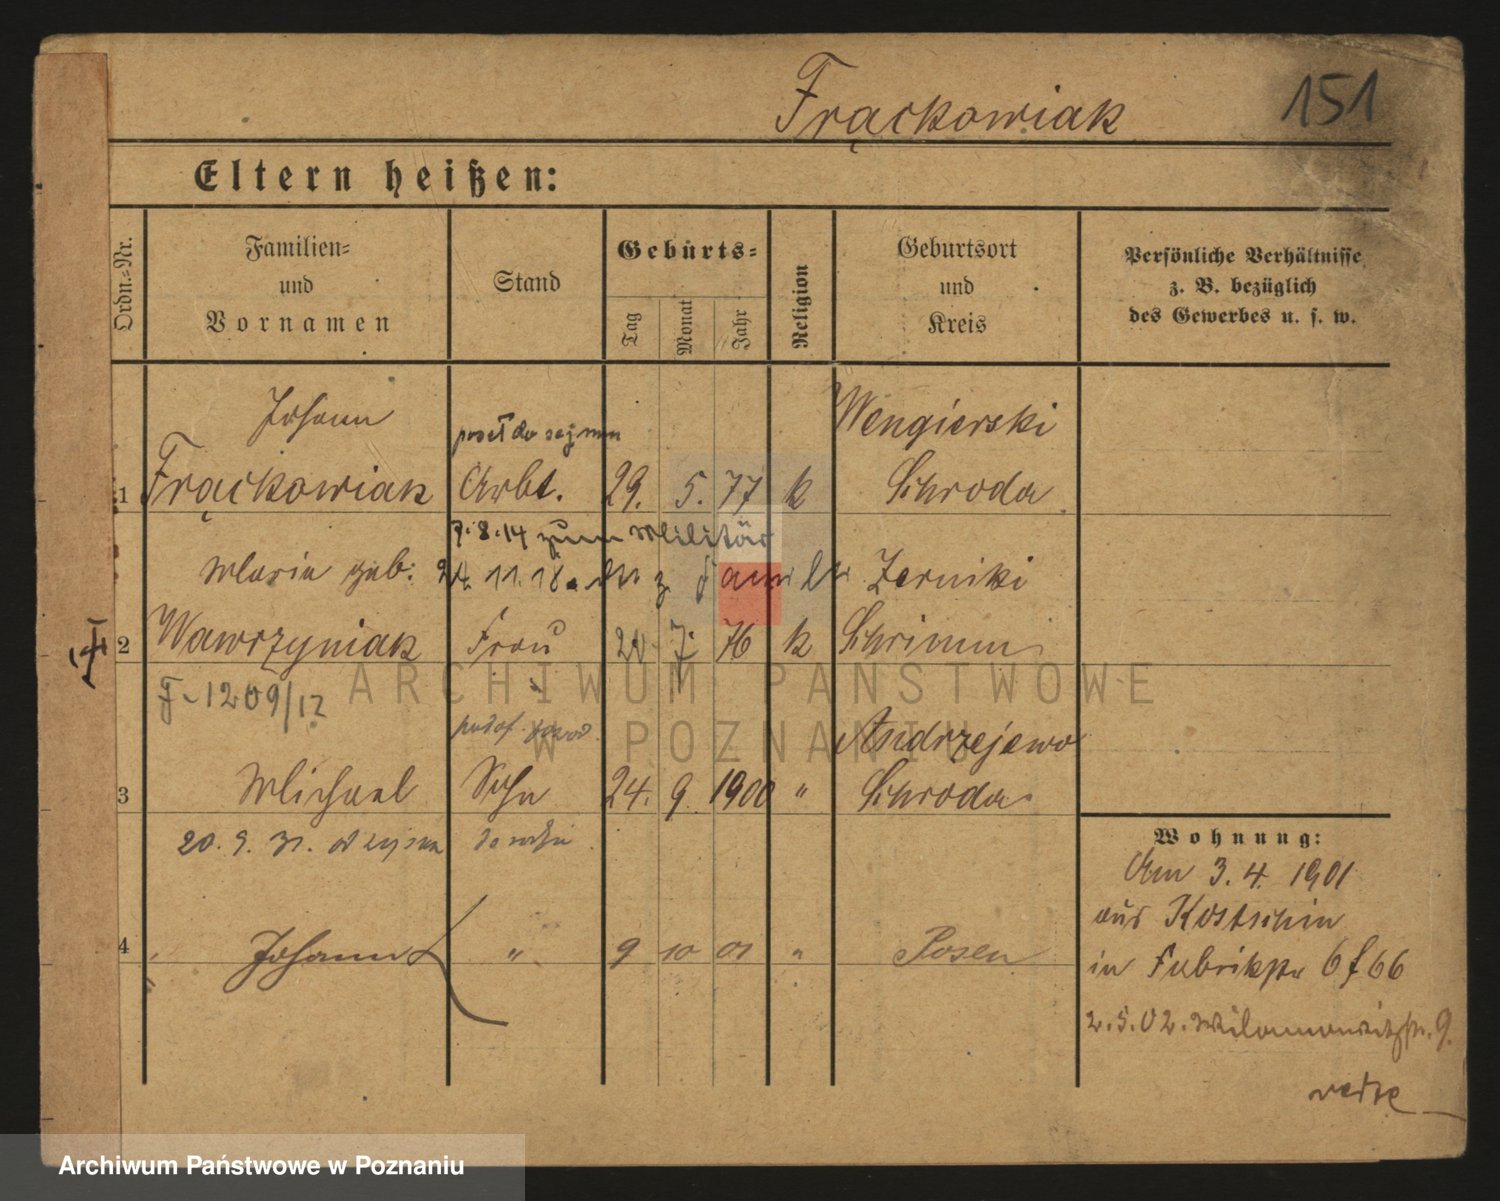 Frąckowiak 151
Eltern heißen:
Ordn.=Nr.
Familien=
und
Vornamen
Stand
Geburts=
Tag
Monat
Jahr
Religion
Geburtsort
und
Kreis
Persönliche Verhältnisse
z. B. bezüglich
des Gewerbes u. s. w.
Johann
poseł do sejmu
Wengierski
1 Frąckowiak Arbt. 29. 5. 77 k Schroda
9.8.14 zum Militär
Maria geb: 24. 11. 18. z Familie Zerniki
2 Wawrzyniak Frau 20. 7. 76 k Schrimm
F-1209/12
Andrzejewo
3 Michael Sohn 24. 9. 1900 " Schroda
20. 9. 31.
4 Johann " 9 10 01 " Posen
Wohnung:
Am 3. 4. 1901
aus Kostschin
in Fabrikstr 6 f 66
2.5.02. Wilamowitzstr. 9.
ARCHIWUM PAŃSTWOWE
W POZNANIU
Archiwum Państwowe w Poznaniu